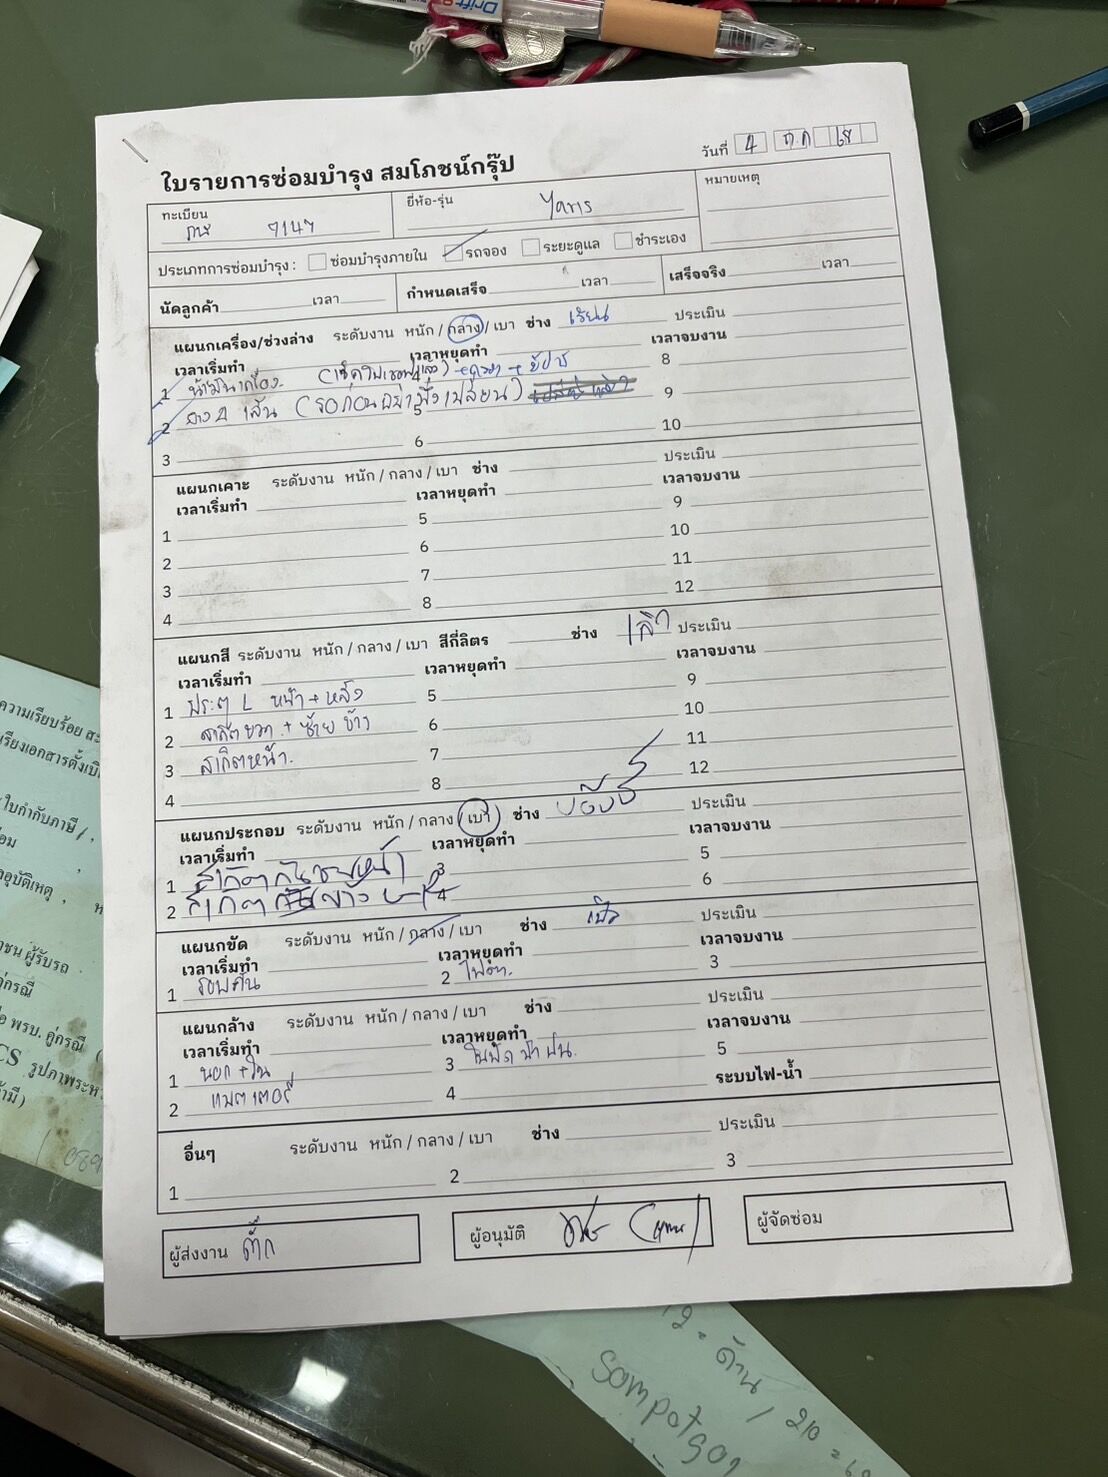 ใบรายการซ่อมบำรุง สมโภชน์กรุ๊ป
วันที่ 4 ต.ค 68
ทะเบียน
ยี่ห้อ-รุ่น Yaris
หมายเหตุ
ประเภทการซ่อมบำรุง : ซ่อมบำรุงภายใน รถจอง ระยะดูแล ชำระเอง
นัดลูกค้า เวลา กำหนดเสร็จ เวลา เสร็จจริง เวลา
แผนกเครื่อง/ช่วงล่าง ระดับงาน หนัก / กลาง / เบา ช่าง เรียน ประเมิน
เวลาเริ่มทำ เวลาหยุดทำ เวลาจบงาน
1 น้ำมันเครื่อง 4 8
2 ยาง 2 เส้น (รอก่อนอย่าพึ่งเปลี่ยน) 5 9
3 6 10
แผนกเคาะ ระดับงาน หนัก / กลาง / เบา ช่าง ประเมิน
เวลาเริ่มทำ เวลาหยุดทำ เวลาจบงาน
1 5 9
2 6 10
3 7 11
4 8 12
แผนกสี ระดับงาน หนัก / กลาง / เบา สีกี่ลิตร ช่าง ประเมิน
เวลาเริ่มทำ เวลาหยุดทำ เวลาจบงาน
1 ประตู L หน้า + หลัง 5 9
2 สเกิต ขวา + ซ้าย ข้าง 6 10
3 สเกิตหน้า 7 11
4 8 12
แผนกประกอบ ระดับงาน หนัก / กลาง / เบา ช่าง ประเมิน
เวลาเริ่มทำ เวลาหยุดทำ เวลาจบงาน
1 สเกิตกันชนหน้า 3 5
2 สเกิต ข้าง 4 6
แผนกขัด ระดับงาน หนัก / กลาง / เบา ช่าง ประเมิน
เวลาเริ่มทำ เวลาหยุดทำ เวลาจบงาน
1 รอบคัน 2 ไฟตา 3
แผนกล้าง ระดับงาน หนัก / กลาง / เบา ช่าง ประเมิน
เวลาเริ่มทำ เวลาหยุดทำ เวลาจบงาน
1 นอก + ใน 3 ใบปัดน้ำฝน 5
2 แบตเตอรี่ 4 ระบบไฟ-น้ำ
อื่นๆ ระดับงาน หนัก / กลาง / เบา ช่าง ประเมิน
1 2 3
ผู้ส่งงาน ตั๊ก ผู้อนุมัติ ผู้จัดซ่อม